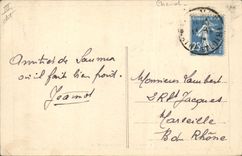 Amitiés de Saumur
où il fait bien froid.
Jeannot
Monsieur Lambert
5 R St Jacques
Marseille
B du Rhône